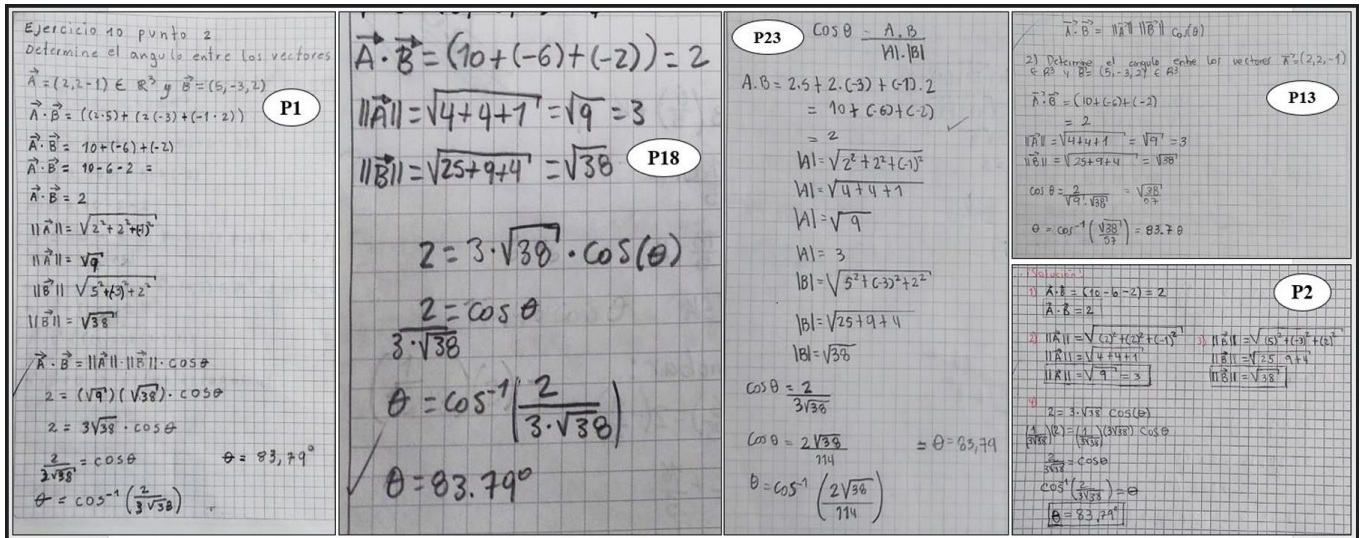 Ejercicio 10 punto 2
Determine el angulo entre los vectores
A⃗ = (2,2-1) ∈ ℝ³ y B⃗ = (5,-3,2)
P1
A⃗ · B⃗ = ((2·5) + (2(-3) + (-1·2))
A⃗ · B⃗ = 10+(-6)+(-2)
A⃗ · B⃗ = 10-6-2 =
A⃗ · B⃗ = 2
||A⃗|| = √2²+2²+(-1)²
||A⃗|| = √9
||B⃗|| √5²+(-3)²+2²
||B⃗|| = √38
A⃗ · B⃗ = ||A⃗||·||B⃗||·cosθ
2 = (√9)(√38)·cosθ
2 = 3√38 · cosθ
2/3√38 = cosθ θ = 83,79°
θ = cos⁻¹(2/3√38)
A⃗ · B⃗ = (10+(-6)+(-2)) = 2
||A⃗|| = √4+4+1 = √9 = 3
P18
||B⃗|| = √25+9+4 = √38
2 = 3·√38 · cos(θ)
2/3·√38 = cosθ
θ = cos⁻¹(2/3·√38)
θ = 83.79°
P23
Cosθ = A.B/|A|.|B|
A.B = 2.5 + 2.(-3) + (-1).2
= 10 + (-6) + (-2)
= 2
|A| = √2²+2²+(-1)²
|A| = √4+4+1
|A| = √9
|A| = 3
|B| = √5²+(-3)²+2²
|B| = √25+9+4
|B| = √38
cosθ = 2/3√38
Cosθ = 2√38/114 = θ = 83,79
θ = cos⁻¹(2√38/114)
A⃗·B⃗ = ||A⃗|| ||B⃗|| cos(θ)
2) Determine el angulo entre los vectores A⃗=(2,2,-1)
∈ ℝ³ y B⃗ = (5,-3,2) ∈ ℝ³
P13
A⃗·B⃗ = (10+(-6)+(-2)
= 2
||A⃗|| = √4+4+1 = √9 = 3
||B⃗|| = √25+9+4 = √38
cos θ = 2/√9·√38 = √38/57
θ = cos⁻¹(√38/57) = 83.7 θ
Solución:
P2
1) A⃗·B⃗ = (10-6-2) = 2
A⃗·B⃗ = 2
2) ||A⃗|| = √(2)²+(2)²+(-1)² 3) ||B⃗|| = √(5)²+(-3)²+(2)²
||A⃗|| = √4+4+1 ||B⃗|| = √25 9+4
||A⃗|| = √9 = 3 ||B⃗|| = √38
4)
2 = 3·√38 cos(θ)
(1/3√38)(2) = (1/3√38)(3√38) Cosθ
2/3√38 = cosθ
cos⁻¹(2/3√38) = θ
θ = 83,79°